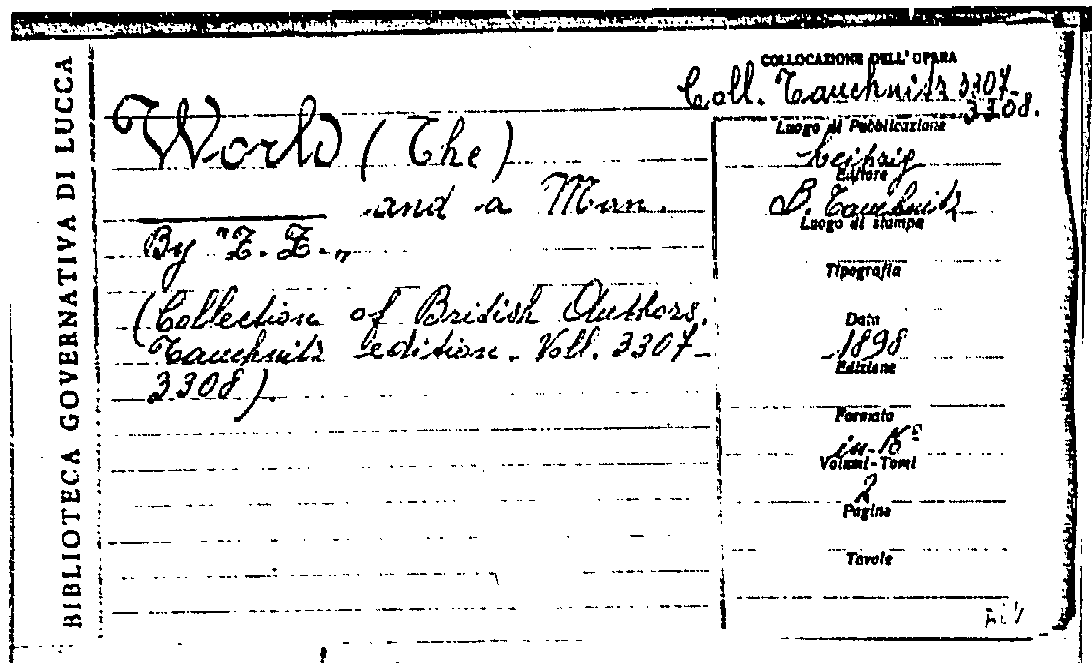 BIBLIOTECA GOVERNATIVA DI LUCCA
COLLOCAZIONE DELL'OPERA
Coll. Tauchnitz 3307-
3308.
World (The)
and a Man.
By "Z. Z.„
(Collection of British Authors.
Tauchnitz edition. Voll. 3307-
3308).
Luogo di Pubblicazione
Leipzig
Editore
B. Tauchnitz
Luogo di stampa
Tipografia
Data
1898
Edizione
Formato
in-16°
Volumi-Tomi
2
Pagine
Tavole